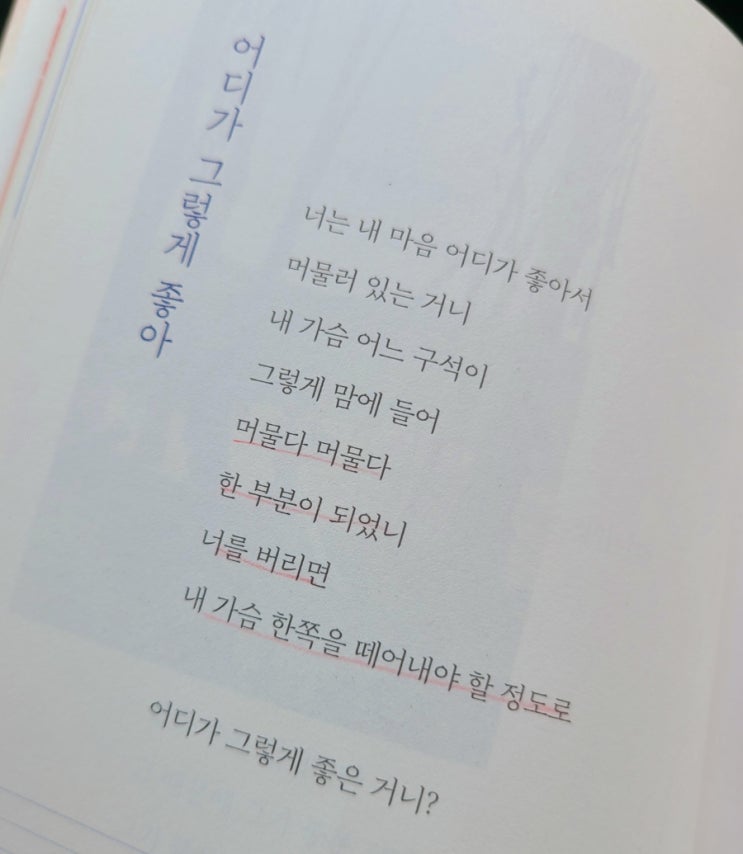 어디가 그렇게 좋아
너는 내 마음 어디가 좋아서
머물러 있는 거니
내 가슴 어느 구석이
그렇게 맘에 들어
머물다 머물다
한 부분이 되었니
너를 버리면
내 가슴 한쪽을 떼어내야 할 정도로
어디가 그렇게 좋은 거니?